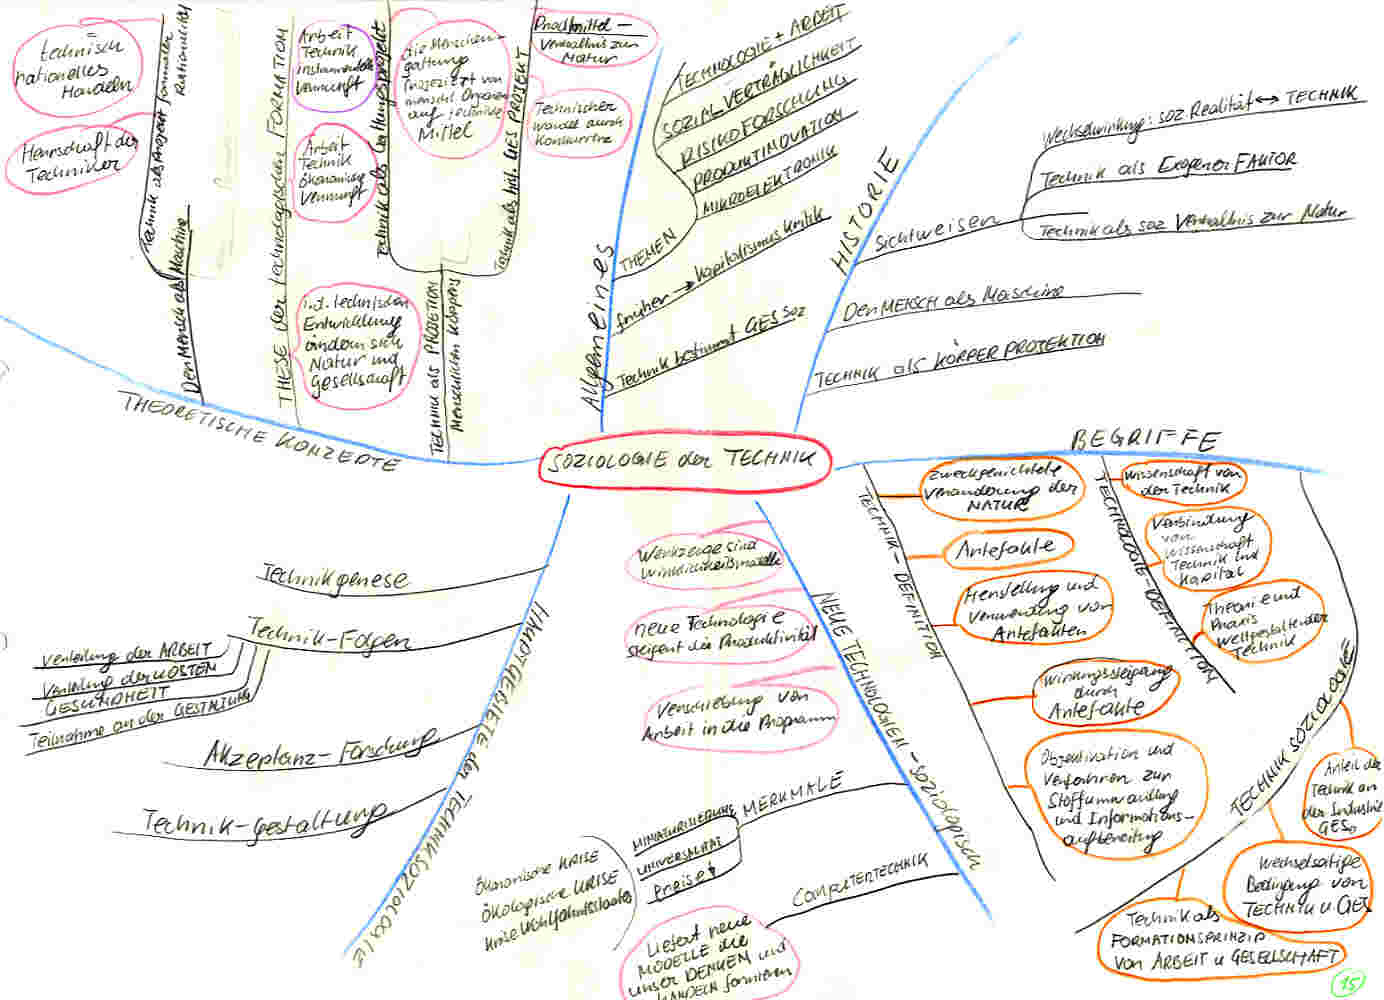 SOZIOLOGIE der TECHNIK
THEORETISCHE KONZEPTE
technisch
rationelles
Handeln
Herrschaft der
Techniker
Technik als Projekt formaler
Rationalität
Den Mensch als Maschine
THESE der technologischen FORMATION
Arbeit
Technik
instrumentelle
Vernunft
Arbeit
Technik
ökonomische
Vernunft
mit technischen
Entwicklung
ändern sich
Natur und
Gesellschaft
TECHNIK als PROJEKTION
Menschlichen Körpers
die Menschen-
gattung
projeziert von
menschl. Organen
auf technische
Mittel
Technik als hist. GES PROJEKT
Verhältnis zur
Natur
Technischer
Wandel durch
Konkurrenz
Allgemeines
THEMEN
TECHNOLOGIE + ARBEIT
SOZIAL-VERTRÄGLICHKEIT
RISIKOFORSCHUNG
PRODUKTINOVATION
MIKROELEKTRONIK
früher → Kapitalismus Kritik
Technik bestimmt GES SOZ
HISTORIE
Sichtweisen
Wechselwirkung: soz Realität ↔ TECHNIK
Technik als Exogener FAKTOR
Technik als soz Verhältnis zur Natur
Den MENSCH als Maschine
TECHNIK als KÖRPER PROJEKTION
BEGRIFFE
TECHNIK-DEFINITION
zweckgerichtete
Veränderung der
NATUR
Artefakte
Herstellung und
Verwendung von
Artefakten
Wirkungssteigerung
durch
Artefakte
Objektivation und
Verfahren zur
Stoffumwandlung
und Informations-
aufbereitung
TECHNOLOGIE-DEFINITION
Wissenschaft von
der Technik
Verbindung
von
Wissenschaft
Technik und
Kapital
Theorie und
Praxis
weltgestaltender
Technik
TECHNIK SOZIOLOGIE
Anteil der
Technik an
der Industrie
GES.
Wechselseitige
Bedingung von
TECHNIK u GES
Technik als
FORMATIONSPRINZIP
von ARBEIT u GESELLSCHAFT
NEUE TECHNOLOGIEN - soziologisch
Werkzeuge sind
Wirklichkeitsmodelle
neue Technologie
steigert die Produktivität
Verschiebung von
Arbeit in die Programm
MERKMALE
MINIATURISIERUNG
UNIVERSALITÄT
Preise↓
ökonomische KRISE
ökologische KRISE
Krise Wohlfahrtsstaates
COMPUTERTECHNIK
Liefert neue
MODELLE die
unser DENKEN und
HANDELN formieren
HAUPTGEBIETE der TECHNIKSOZIOLOGIE
Technikgenese
Technik-Folgen
Verteilung der ARBEIT
Verteilung der KOSTEN
GESUNDHEIT
Teilnahme an der GESTALTUNG
Akzeptanz-Forschung
Technik-Gestaltung
15